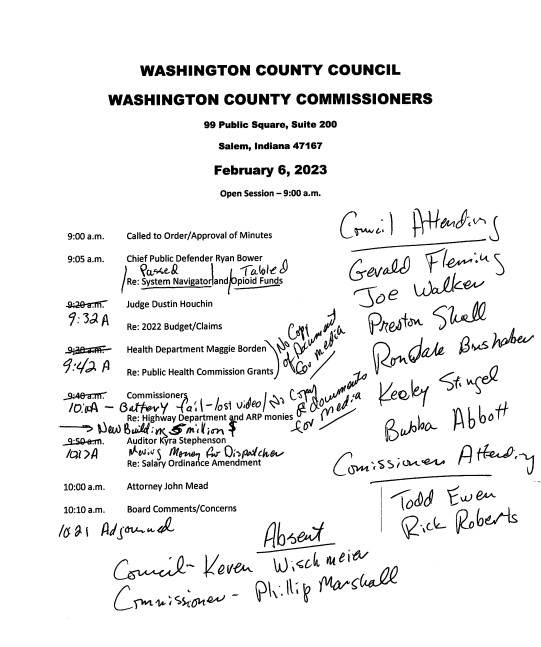 WASHINGTON COUNTY COUNCIL
WASHINGTON COUNTY COMMISSIONERS
99 Public Square, Suite 200
Salem, Indiana 47167
February 6, 2023
Open Session – 9:00 a.m.
9:00 a.m. Called to Order/Approval of Minutes
9:05 a.m. Chief Public Defender Ryan Bower
Passed Tabled
Re: System Navigator and Opioid Funds
9:20 a.m. Judge Dustin Houchin
9:32 A
Re: 2022 Budget/Claims
9:30 a.m. Health Department Maggie Borden
9:42 A
Re: Public Health Commission Grants
No Copy
of Document
for media
9:40 a.m. Commissioners
10:10A - Battery fail - lost video / No Copy
of documents
for media
Re: Highway Department and ARP monies
→ New Building 5 million $
9:50 a.m. Auditor Kyra Stephenson
1017A Moving Money for Dispatcher
Re: Salary Ordinance Amendment
10:00 a.m. Attorney John Mead
10:10 a.m. Board Comments/Concerns
10:21 Adjourned
Council Attending
Gerald Fleming
Joe Walker
Preston Shell
Rondale Brishaber
Keeley Stingel
Bubba Abbott
Comissioners Attending
Todd Ewen
Rick Roberts
Absent
Council - Keven Wischmeier
Commissioner - Phillip Marshall